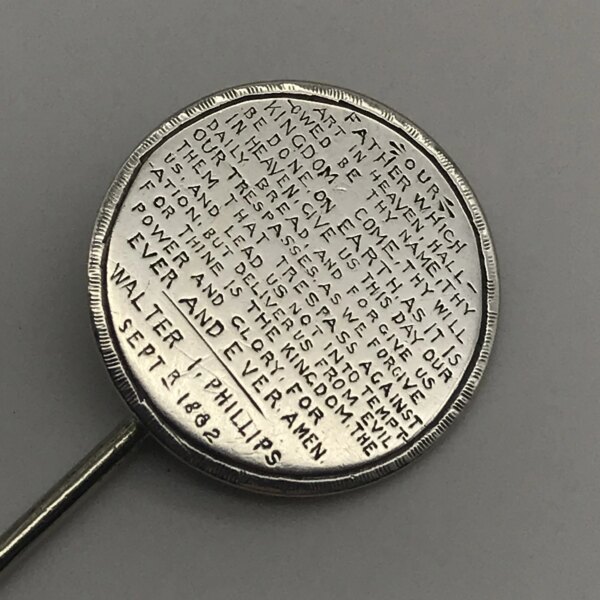 "OUR"
FATHER WHICH
ART IN HEAVEN HALL-
OWED BE THY NAME. THY
KINGDOM COME. THY WILL
BE DONE. ON EARTH AS IT IS
IN HEAVEN. GIVE US THIS DAY OUR
DAILY BREAD AND FORGIVE US
OUR TRESPASSES AS WE FORGIVE
THEM THAT TRESPASS AGAINST
US AND LEAD US NOT INTO TEMPT
ATION. BUT DELIVER US FROM EVIL
FOR THINE IS THE KINGDOM. THE
POWER AND GLORY. FOR
EVER AND EVER. AMEN.
WALTER I. PHILLIPS
SEPT R 1882